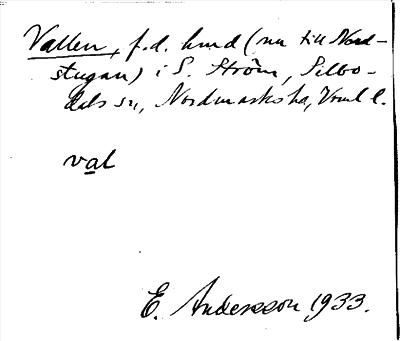 Vallen, f.d. lund (nu till Nord-
stugan) i S. Ström, Silbo-
dals sn, Nordmarks hd, Vrml l.
val
E. Andersson 1933.